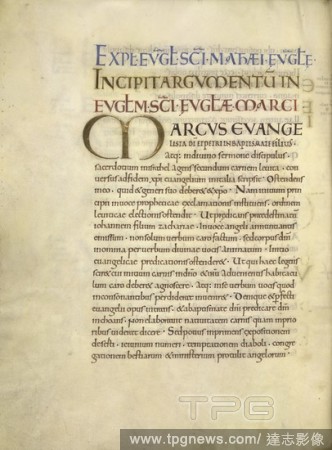 EXPL EVGL SCI MATHEI EVGLE.
INCIPIT ARGUMENTU IN
EVGLM. SCI. EVGLÆ MARCI
MARCUS EVANGE
LISTA DI ET PETRI IN BAPTISMATE FILIUS.
atq; indivino sermone discipulus.
sacerdotium inisrahel agens secundum carnem levita. con
versus adfidem xpi evangelium initalia scripsit. Ostendens
ineo. quod & generi suo deber& & xpo. Nam initium prin
cipii invoce propheticae exclamationis instituens. ordinem
leviticae electionis ostendit. Ut predicans predestinatum
iohannem filium zachariae. Invoce angeli adnuntiantis
emissum. non solum verbum caro factum. sed corpus dni
inomnia per verbum divinae vocis animatum. Initio
evangelicae predicationis ostender&. Ut qui haec legens
sciret cui initium carnis indno & dni advenientis habitacu
lum caro deber& agnoscere. Atq; inse verbum vocis quod
inconsonantibus perdiderat inveniret. Denique & pfecti
evangelii opus intrans. & abaptismate dni predicare dm
inchoans. Non laboravit nativitatem carnis quam inprio
ribus viderat dicere. Sed totus inprimis expositionem
deserti. ieiunium numeri. temptationem diaboli. congre
gationem bestiarum & ministerium protulit angelorum.
TPG
www.tpgnews.com/達志影像